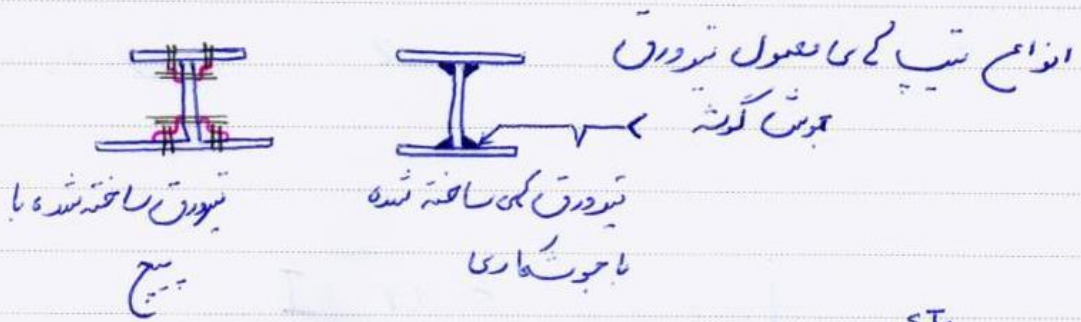 انواع تیپ های معمول تیرورق
جوش گوشه
تیرورق های ساخته شده
با جوشکاری
تیرورق ساخته شده با
پیچ